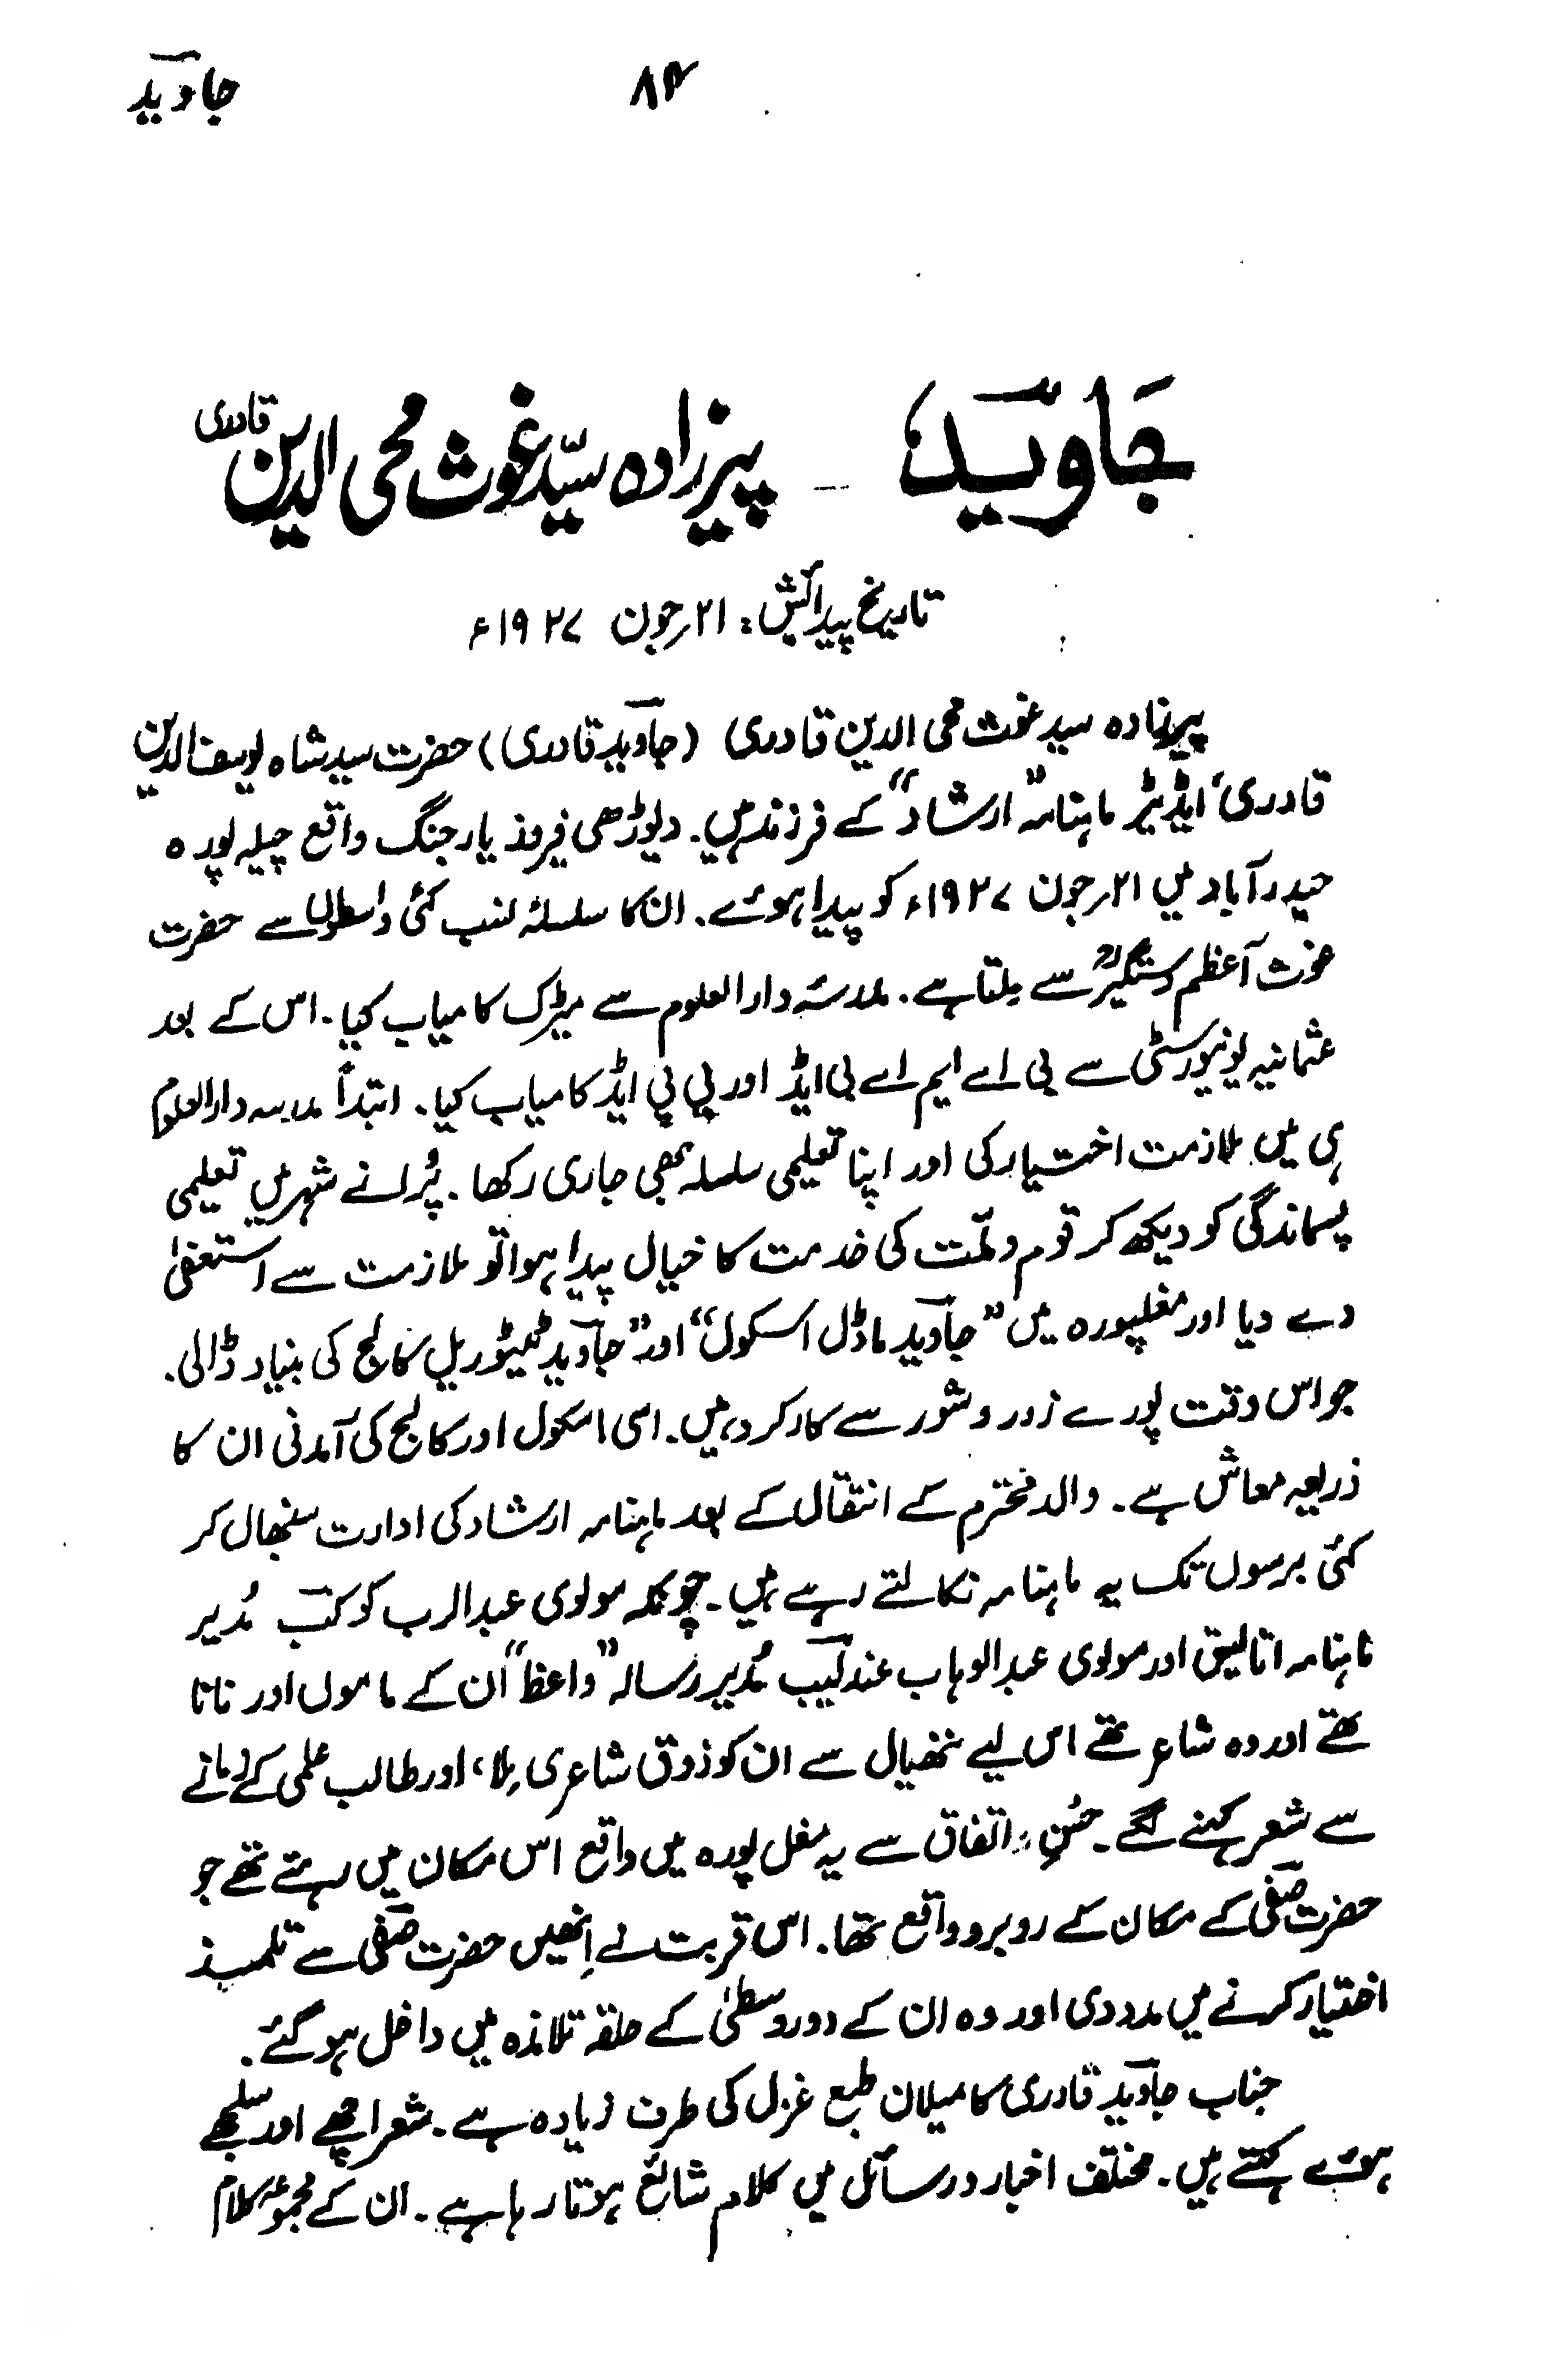 جاوید
۸۴
جاوید، — پیرزادہ سیّد غوث محی الدین قادری
تاریخ پیدائش: ۲۱؍جون ۱۹۲۷ء
پیرزادہ سید غوث محی الدین قادری (جاوید قادری) حضرت سید شاہ یوسف الدین
قادری، ایڈیٹر ماہنامہ ”ارشاد“ کے فرزند ہیں۔ دیوڑھی فیروز یار جنگ واقع چیلہ پورہ
حیدرآباد میں ۲۱؍جون ۱۹۲۷ء کو پیدا ہوئے۔ ان کا سلسلۂ نسب کئی واسطوں سے حضرت
غوث آعظم دستگیرؒ سے ملتا ہے۔ مدرسۂ دارالعلوم سے میٹرک کامیاب کیا۔ اس کے بعد
عثمانیہ یونیورسٹی سے بی اے ایم اے بی ایڈ اور پی پی ایڈ کامیاب کیا۔ ابتدأ مدرسہ دارالعلوم
ہی میں ملازمت اختیار کی اور اپنا تعلیمی سلسلہ بھی جاری رکھا۔ پُرانے شہر میں تعلیمی
پسماندگی کو دیکھ کر قوم و ملّت کی خدمت کا خیال پیدا ہوا تو ملازمت سے استعفیٰ
دے دیا اور مغلپورہ میں ”جاوید ماڈل اسکول“ اور ”جاوید ٹیوٹوریل کالج کی بنیاد ڈالی۔
جو اس وقت پورے زور و شور سے کارکرد ہیں۔ اسی اسکول اور کالج کی آمدنی ان کا
ذریعہ معاش ہے۔ والد محترم کے انتقال کے بعد ماہنامہ ارشاد کی ادارت سنبھال کر
کئی برسوں تک یہ ماہنامہ نکالتے رہے ہیں۔ چونکہ مولوی عبدالرب کوکب مُدیر
ماہنامہ اتالیق اور مولوی عبدالوہاب عندلیب مُدیر رسالہ ”واعظ“ ان کے ماموں اور نانا
تھے اور وہ شاعر تھے اس لیے ننھیال سے ان کو ذوق شاعری مِلا، اور طالب علمی کے زمانے
سے شعر کہنے لگے۔ حُسنِ اتفاق سے یہ مغل پورہ میں واقع اس مکان میں رہتے تھے جو
حضرت صفی کے مکان کے روبرو واقع تھا۔ اس قربت نے اِنھیں حضرت صفی سے تلمیذ
اختیار کرنے میں مدد دی اور وہ ان کے دور وسطیٰ کے حلقہ تلامذہ میں داخل ہو گئے۔
جناب جاوید قادری کا میلان طبع غزل کی طرف زیادہ ہے۔ شعر اچھے اور سلجھے
ہوئے کہتے ہیں۔ مختلف اخبار و رسائل میں کلام شائع ہوتا رہا ہے۔ ان کے مجموعۂ کلام